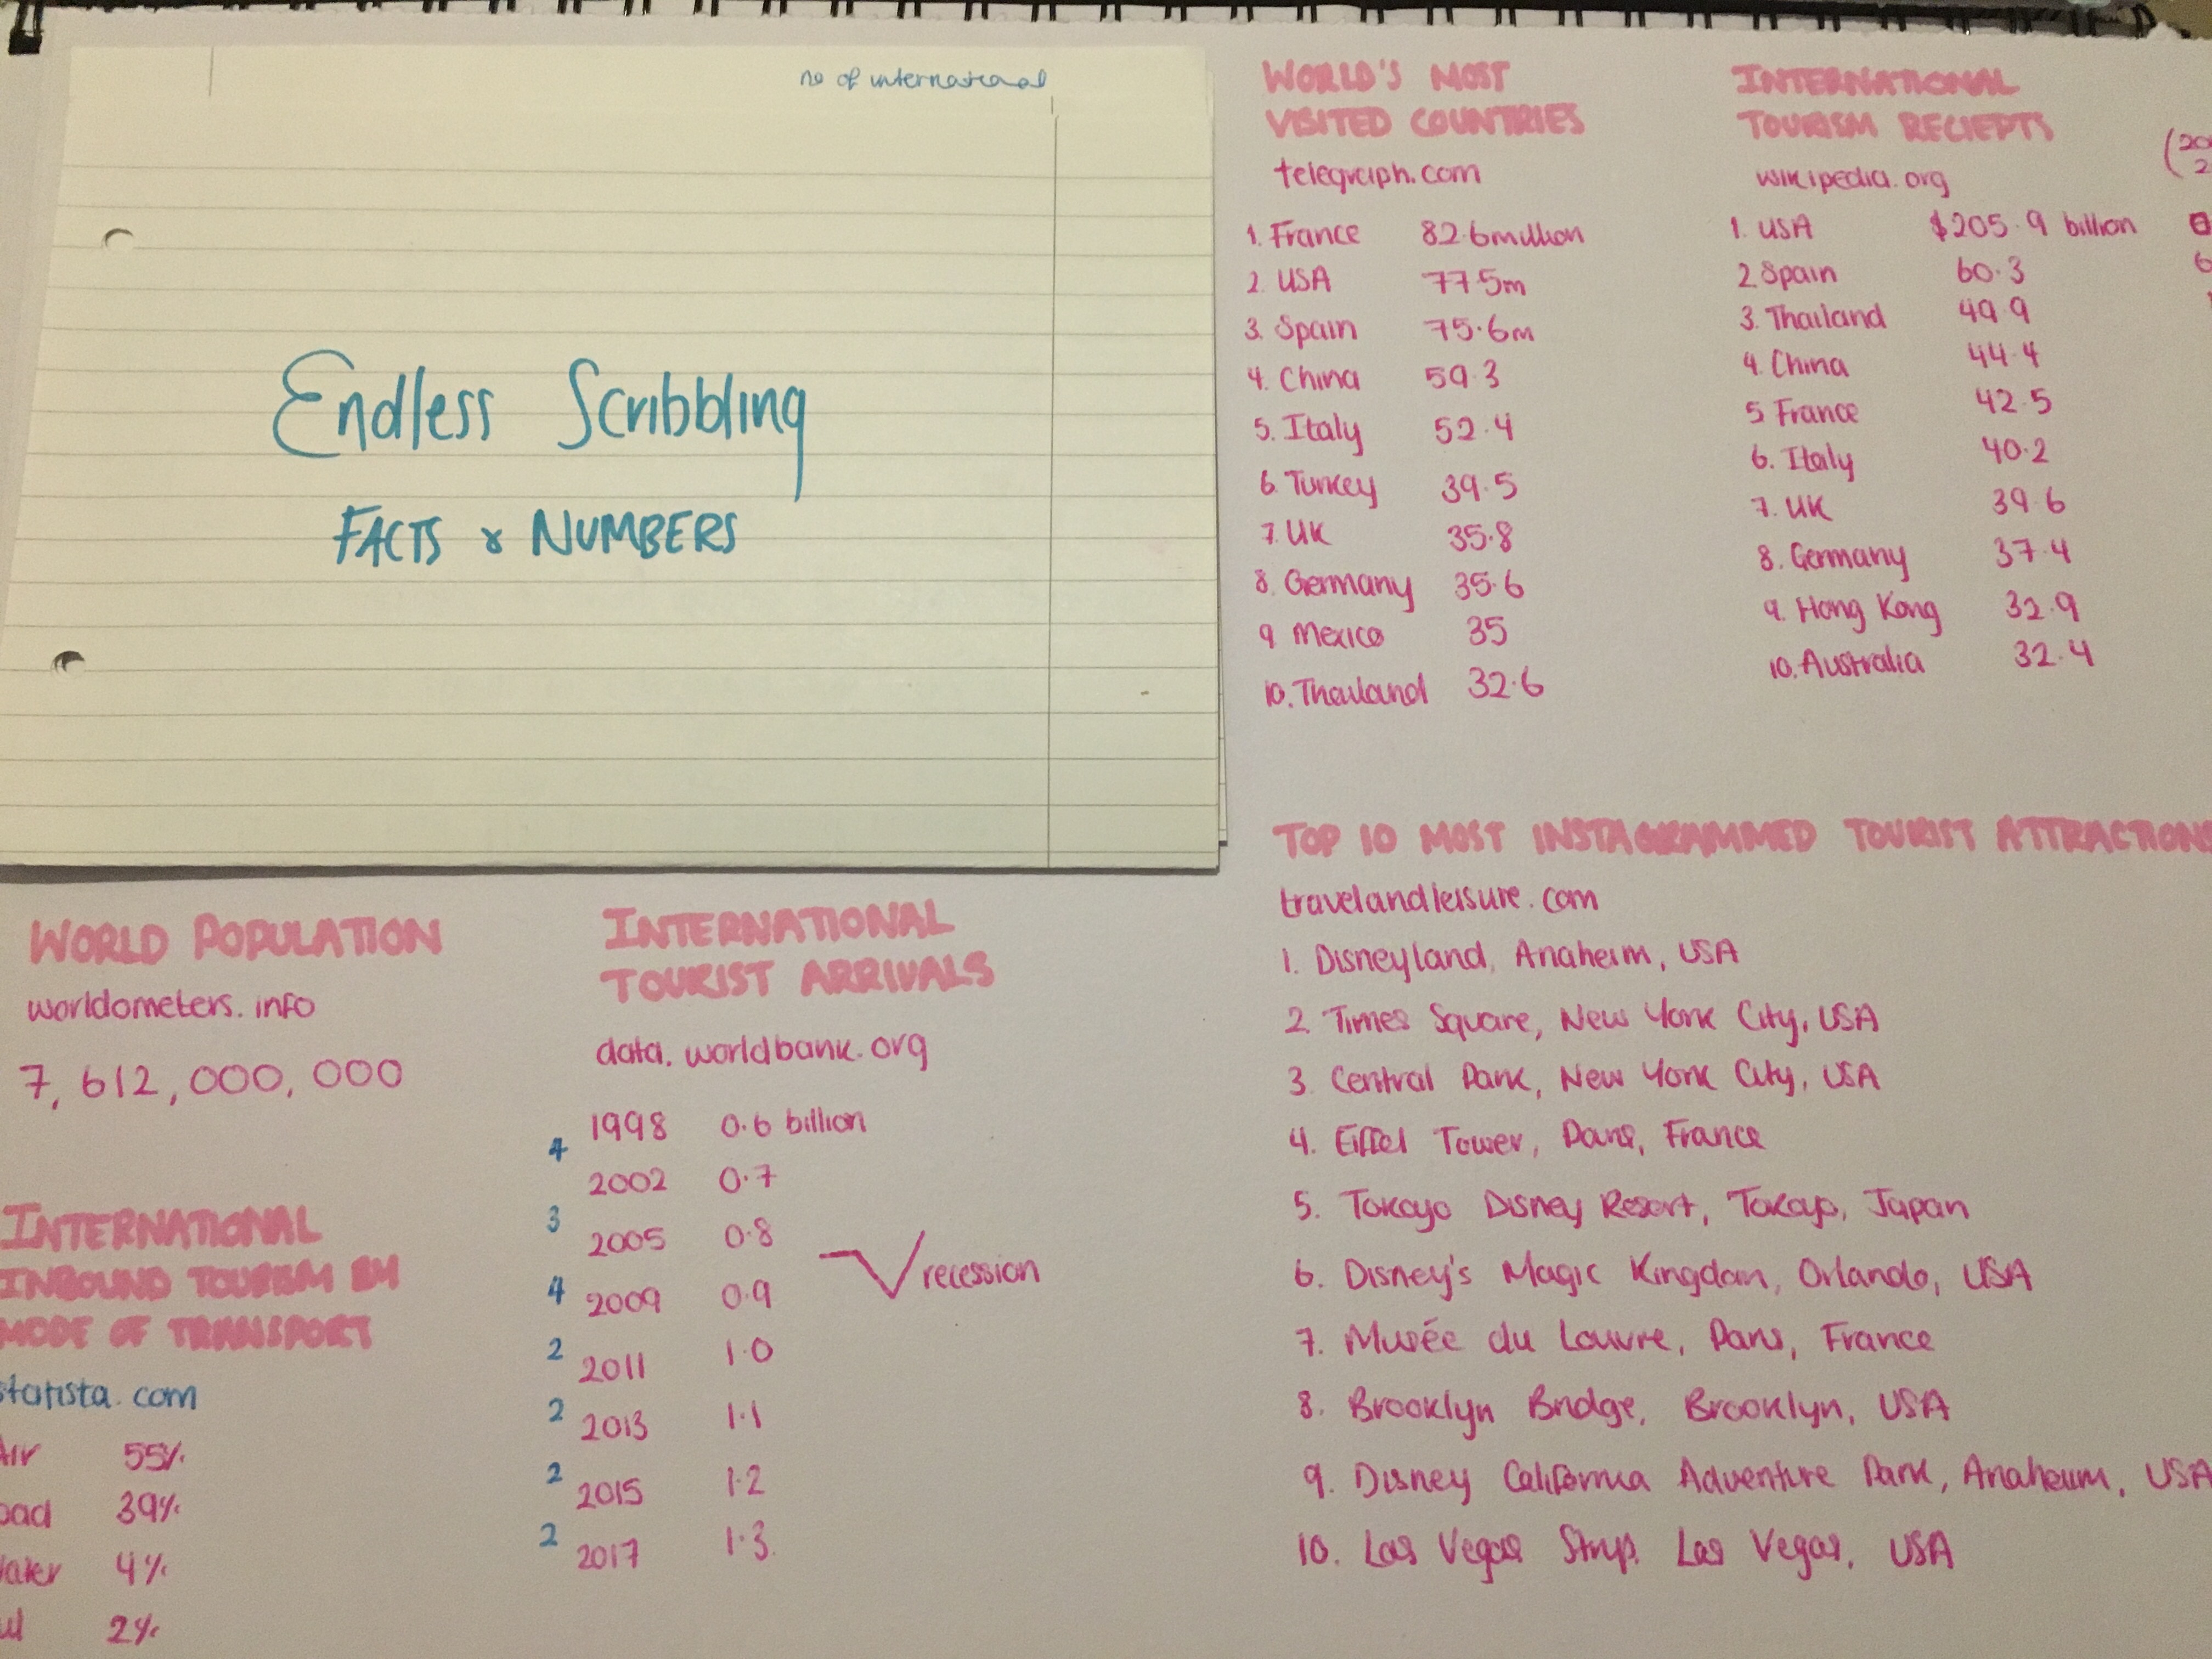 no of international
Endless Scribbling
FACTS & NUMBERS
WORLD'S MOST
VISITED COUNTRIES
telegraph.com
1. France 82.6million
2. USA 77.5m
3. Spain 75.6m
4. China 59.3
5. Italy 52.4
6. Turkey 39.5
7. UK 35.8
8. Germany 35.6
9 Mexico 35
10. Thailand 32.6
INTERNATIONAL
TOURISM RECIEPTS
wikipedia.org
1. USA $205.9 billion
2 Spain 60.3
3. Thailand 49.9
4. China 44.4
5 France 42.5
6. Italy 40.2
7. UK 39.6
8. Germany 37.4
9. Hong Kong 32.9
10. Australia 32.4
WORLD POPULATION
worldometers.info
7,612,000,000
INTERNATIONAL
INBOUND TOURISM BY
MODE OF TRANSPORT
statista.com
Air 55%
oad 39%
ater 4%
2%
INTERNATIONAL
TOURIST ARRIVALS
data.worldbank.org
1998 0.6 billion
4
2002 0.7
3
2005 0.8
recession
4
2009 0.9
2
2011 1.0
2
2013 1.1
2
2015 1.2
2
2017 1.3.
TOP 10 MOST INSTAGRAMMED TOURIST ATTRACTIONS
travelandleisure.com
1. Disneyland, Anaheim, USA
2. Times Square, New York City, USA
3. Central Park, New York City, USA
4. Eiffel Tower, Paris, France
5. Tokoyo Disney Resort, Tokoyo, Japan
6. Disney's Magic Kingdom, Orlando, USA
7. Musée du Louvre, Paris, France
8. Brooklyn Bridge, Brooklyn, USA
9. Disney California Adventure Park, Anaheim, USA
10. Las Vegas Strip. Las Vegas, USA